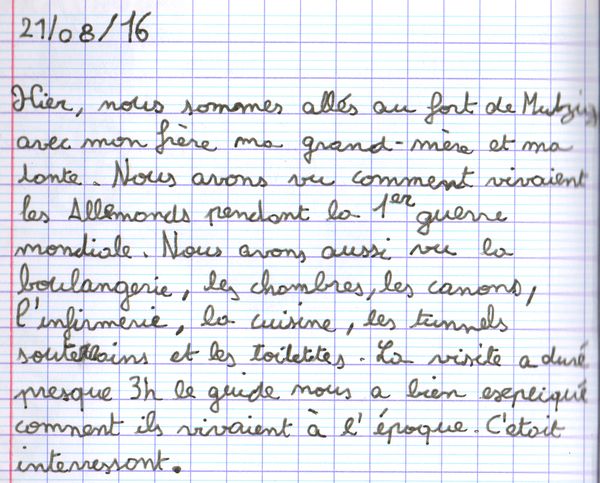 21/08/16
Hier, nous sommes allés au fort de Mutzig
avec mon frère ma grand-mère et ma
tante. Nous avons vu comment vivaient
les Allemands pendant la 1er guerre
mondiale. Nous avons aussi vu la
boulangerie, les chambres, les canons,
l'infirmerie, la cuisine, les tunnels
souterrains et les toilettes. La visite a duré
presque 3h le guide nous a bien expliqué
comment ils vivaient à l'époque. C'etait
interressant.